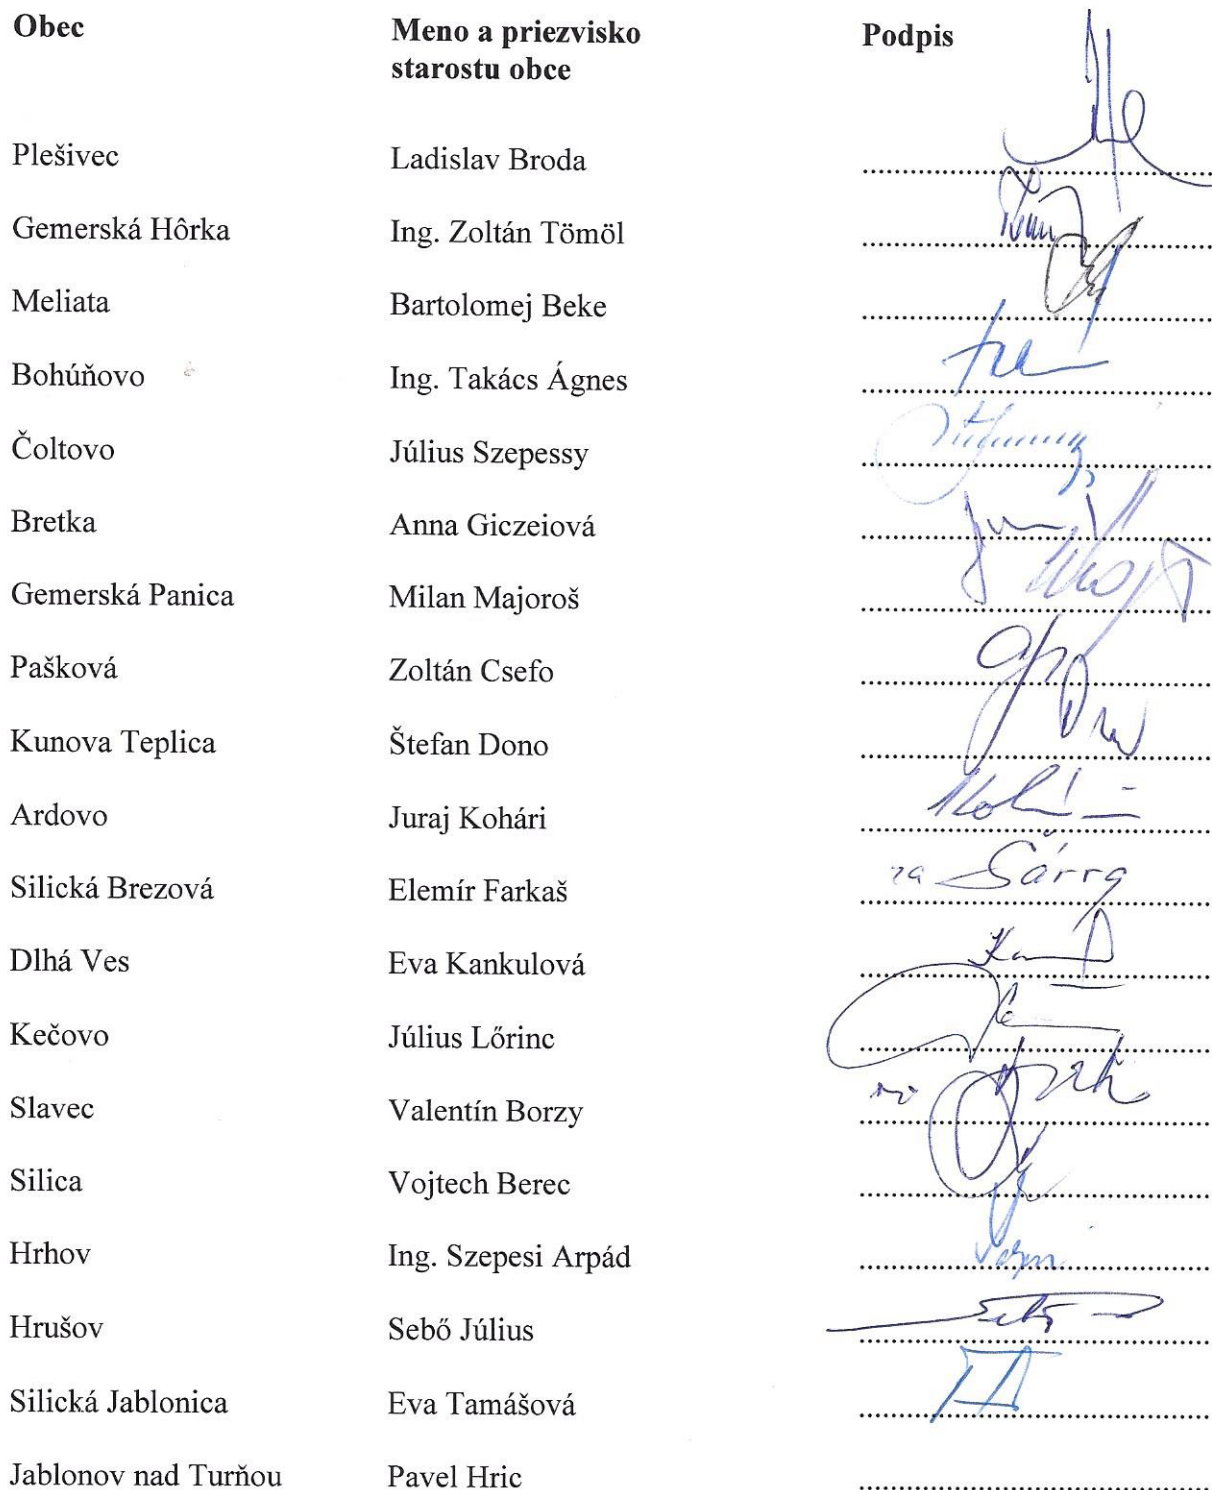 Obec Meno a priezvisko Podpis
starostu obce
Plešivec Ladislav Broda
Gemerská Hôrka Ing. Zoltán Tömöl
Meliata Bartolomej Beke
Bohúňovo Ing. Takács Ágnes
Čoltovo Július Szepessy
Bretka Anna Giczeiová
Gemerská Panica Milan Majoroš
Pašková Zoltán Csefo
Kunova Teplica Štefan Dono
Ardovo Juraj Kohári
Silická Brezová Elemír Farkaš za Šárra
Dlhá Ves Eva Kankulová
Kečovo Július Lőrinc
Slavec Valentín Borzy
Silica Vojtech Berec
Hrhov Ing. Szepesi Arpád
Hrušov Sebő Július
Silická Jablonica Eva Tamášová
Jablonov nad Turňou Pavel Hric